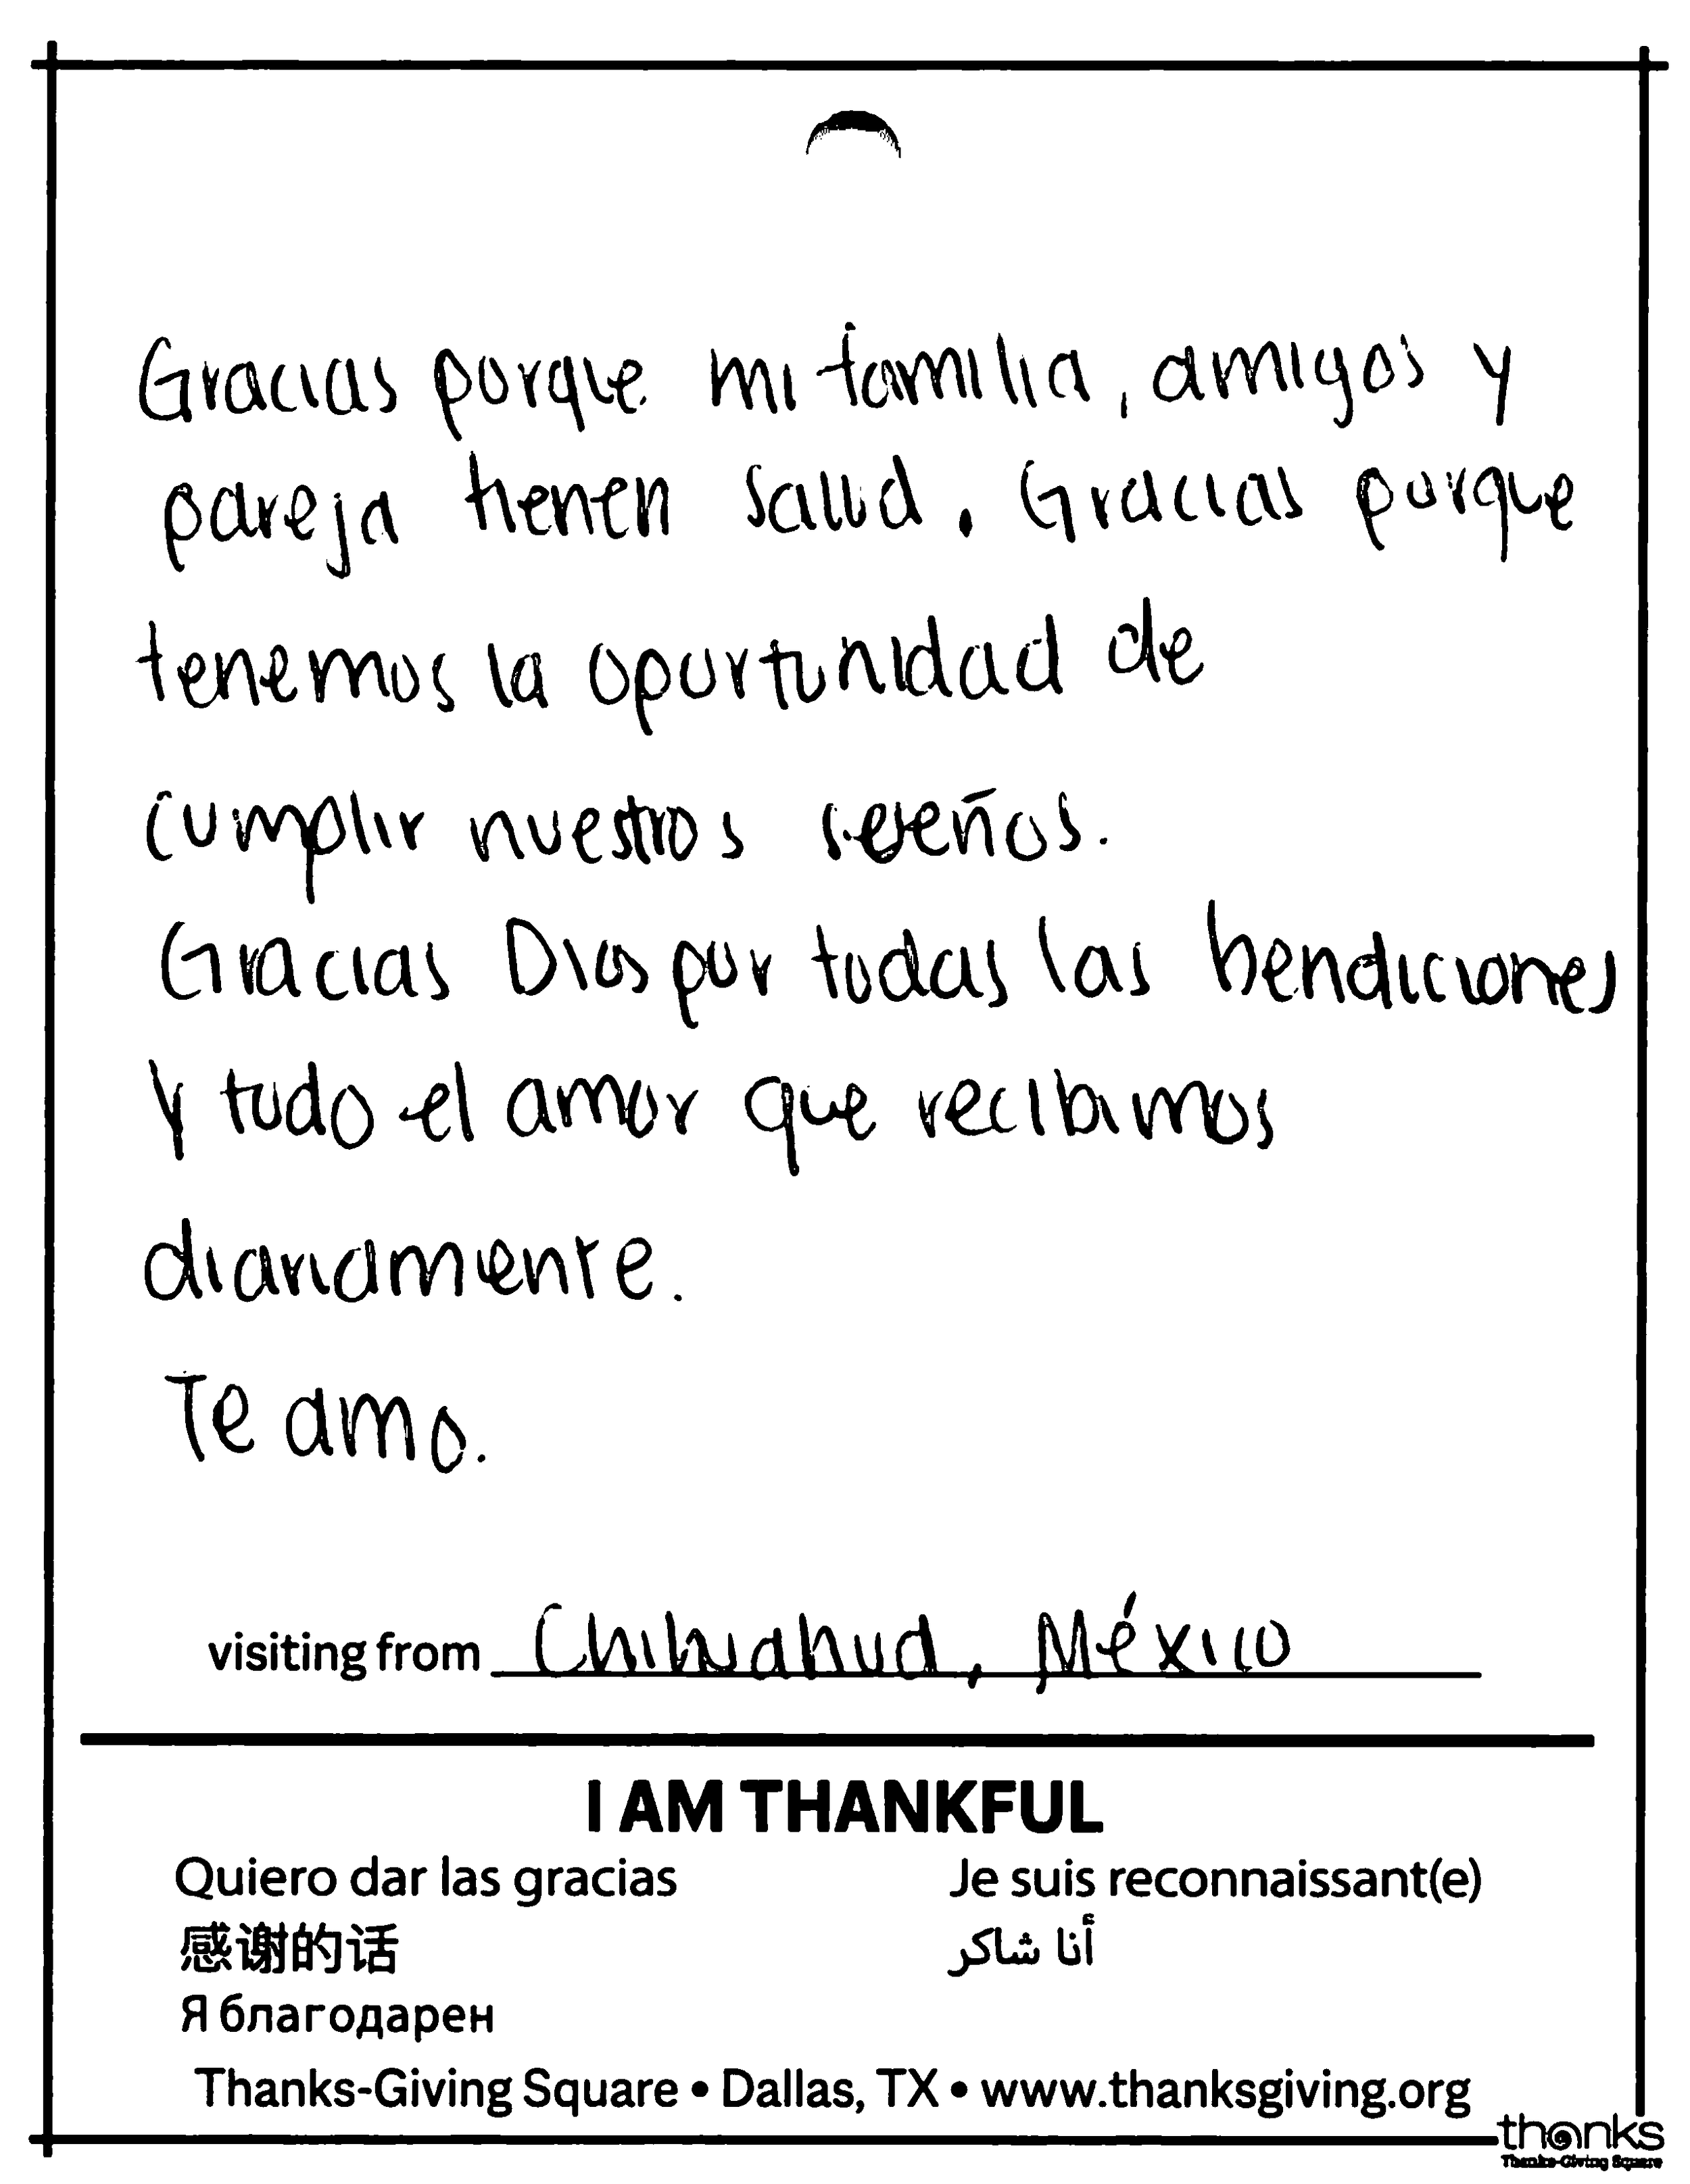 Gracias porque mi familia, amigos y
pareja tienen salud. Gracias porque
tenemos la oportunidad de
cumplir nuestros
Gracias Dios por todas las bendiciones
y todo el amor que recibimos
diariamente.
Te amo.
visiting from Chihuahua, México
I AM THANKFUL
Quiero dar las gracias
Je suis reconnaissant(e)
感谢的话
أنا شاكر
Я благодарен
Thanks-Giving Square • Dallas, TX • www.thanksgiving.org
thanks
Thanks-Giving Square